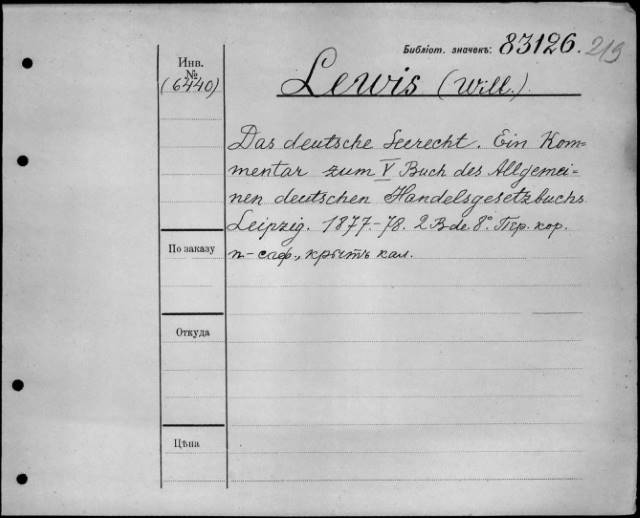 Библіот. значекъ: 83126. 219
Инв.
№
(6440)
Lewis (Will.)
Das deutsche Seerecht. Ein Kom-
mentar zum V Buch des Allgemei-
nen deutschen Handelsgesetzbuchs
Leipzig. 1877-78. 2 Bde 8°. Пер. кор.
п-саф., крытъ кал.
По заказу
Откуда
Цѣна